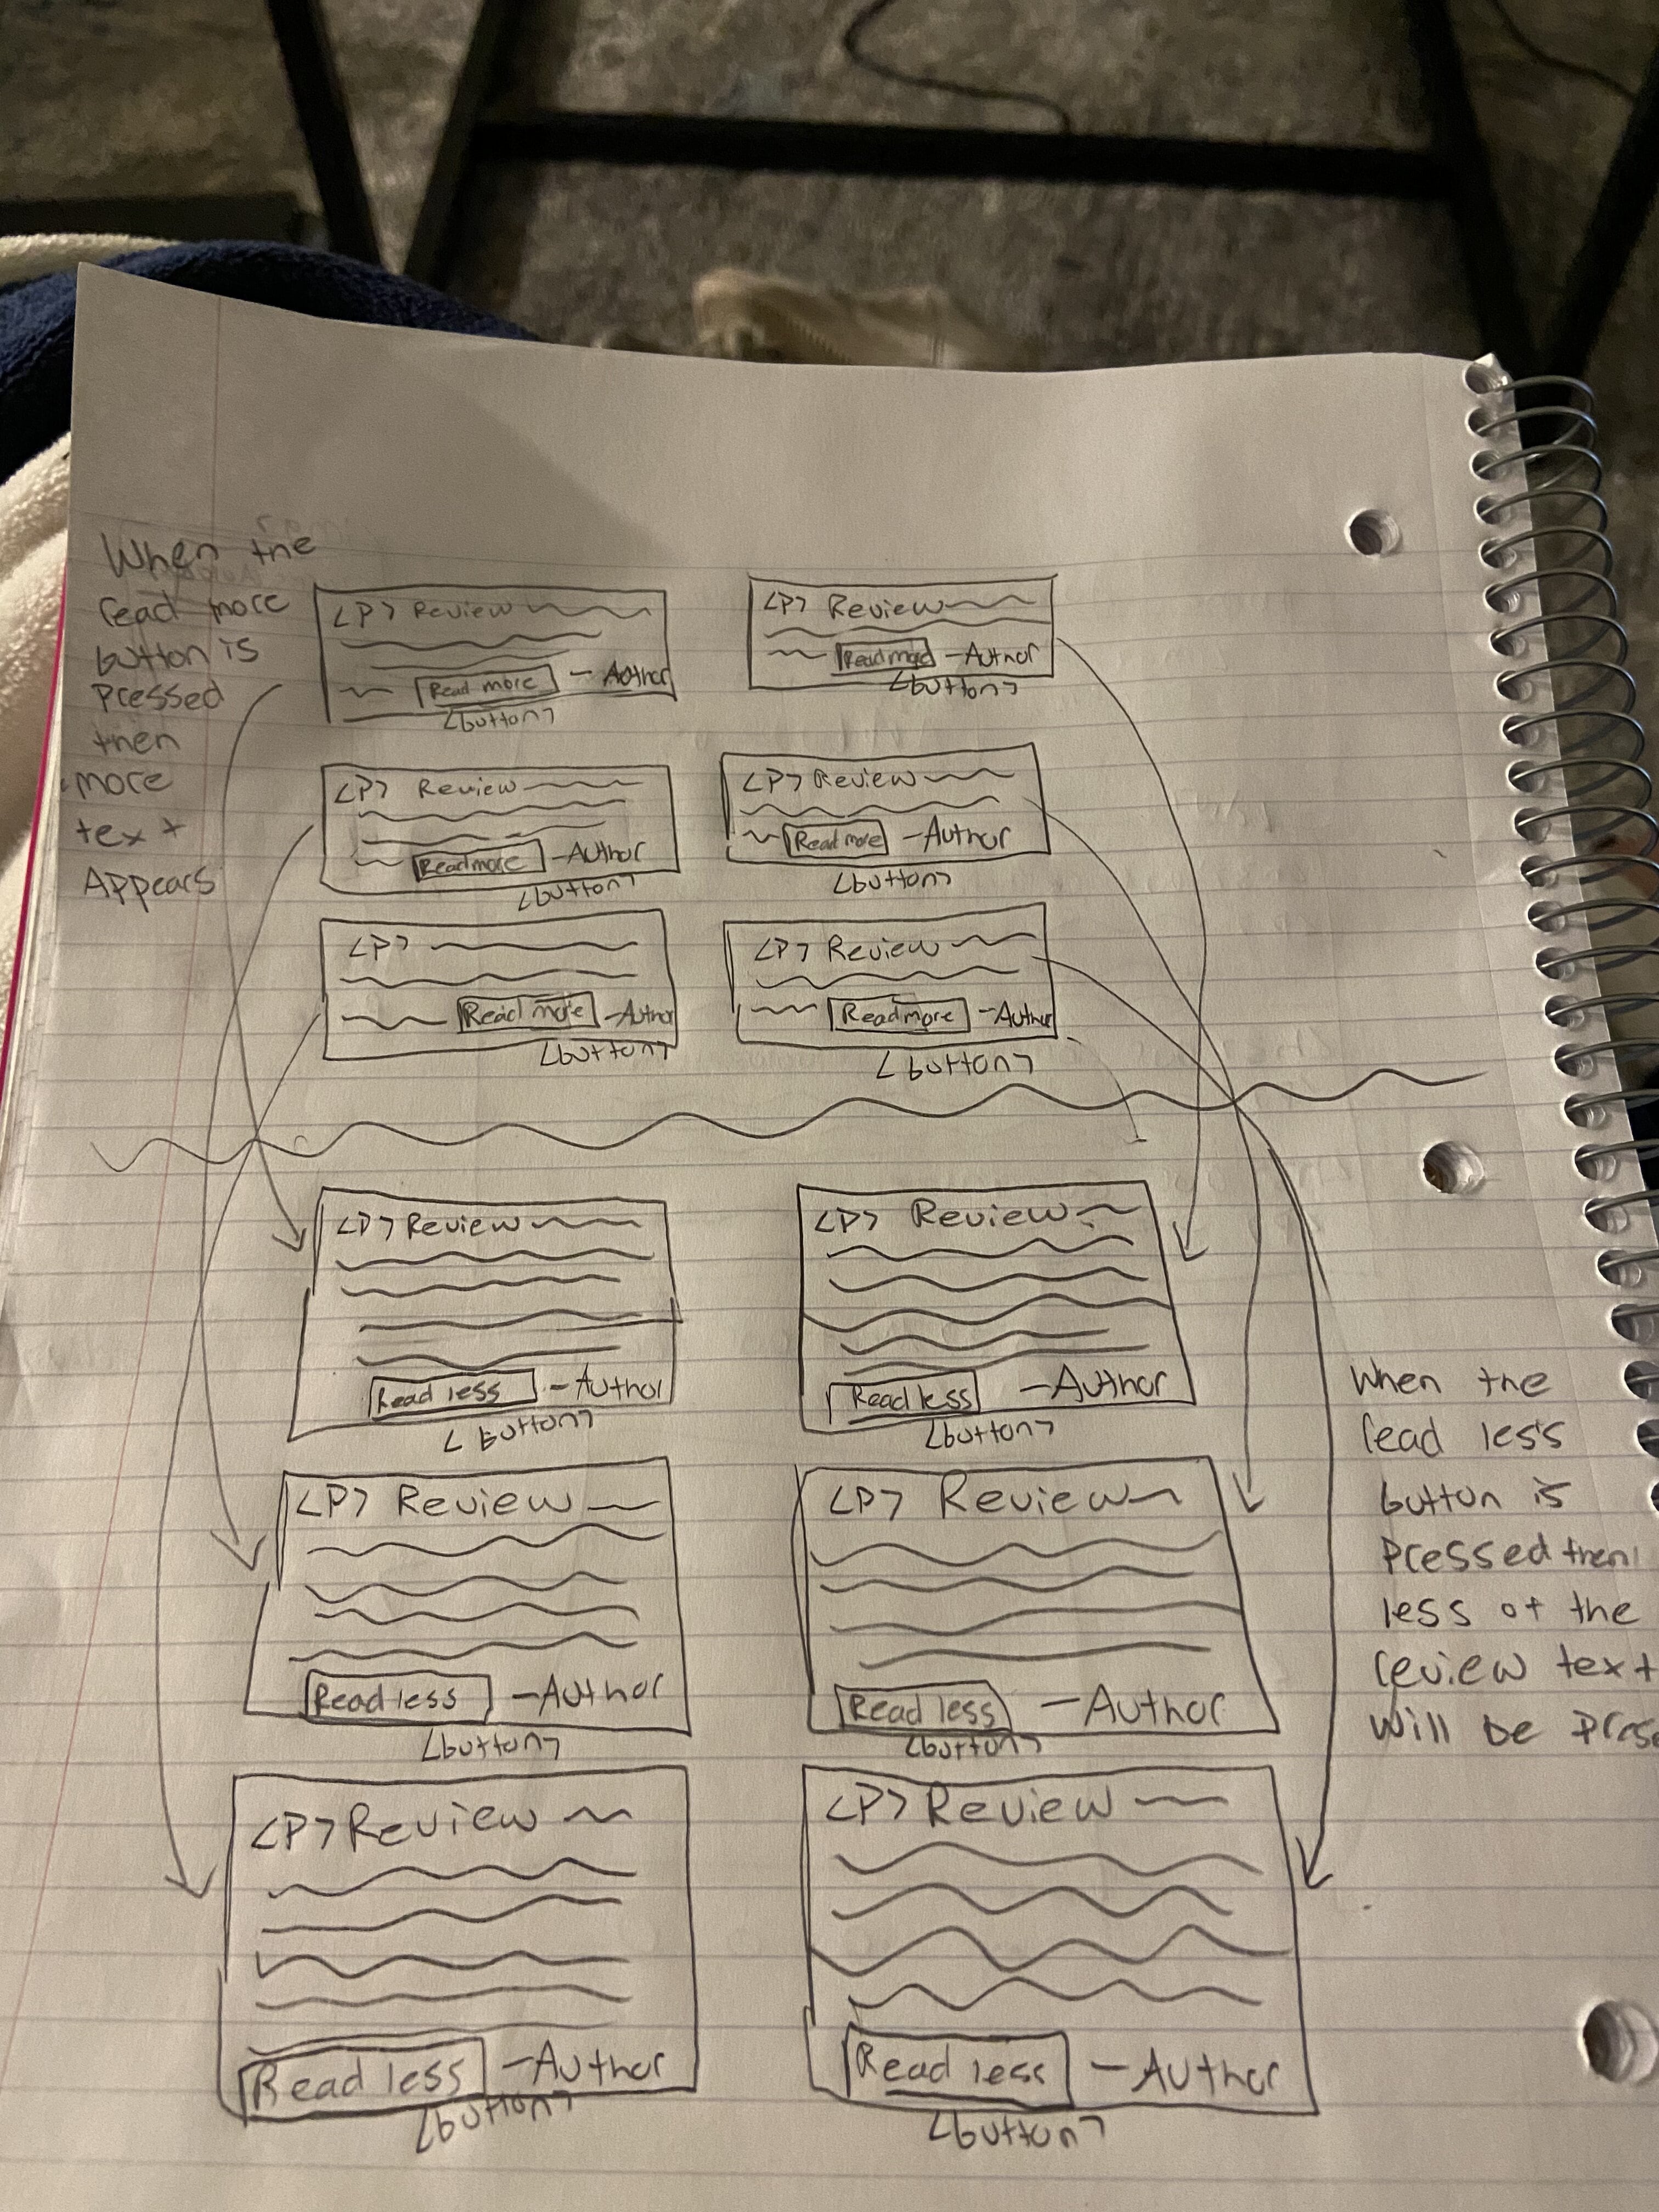 When the
read more
button is
pressed
then
more
text
Appears
<P> Review
Read more - Author
<button>
<P> Review
Read more - Author
<button>
<P> Review
Read more - Author
<button>
<P> Review
Read more - Author
<button>
<P>
Read more - Author
<button>
<P> Review
Read more - Author
<button>
<P> Review
Read less - Author
<button>
<P> Review
Read less - Author
<button>
<P> Review
Read less - Author
<button>
<P> Review
Read less - Author
<button>
<P> Review
Read less - Author
<button>
<P> Review
Read less - Author
<button>
When the
read less
button is
pressed then
less of the
review text
will be prese